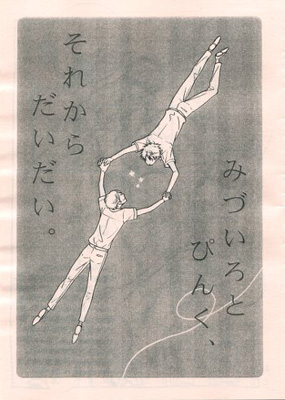 みづいろと
ぴんく、
それから
だいだい。